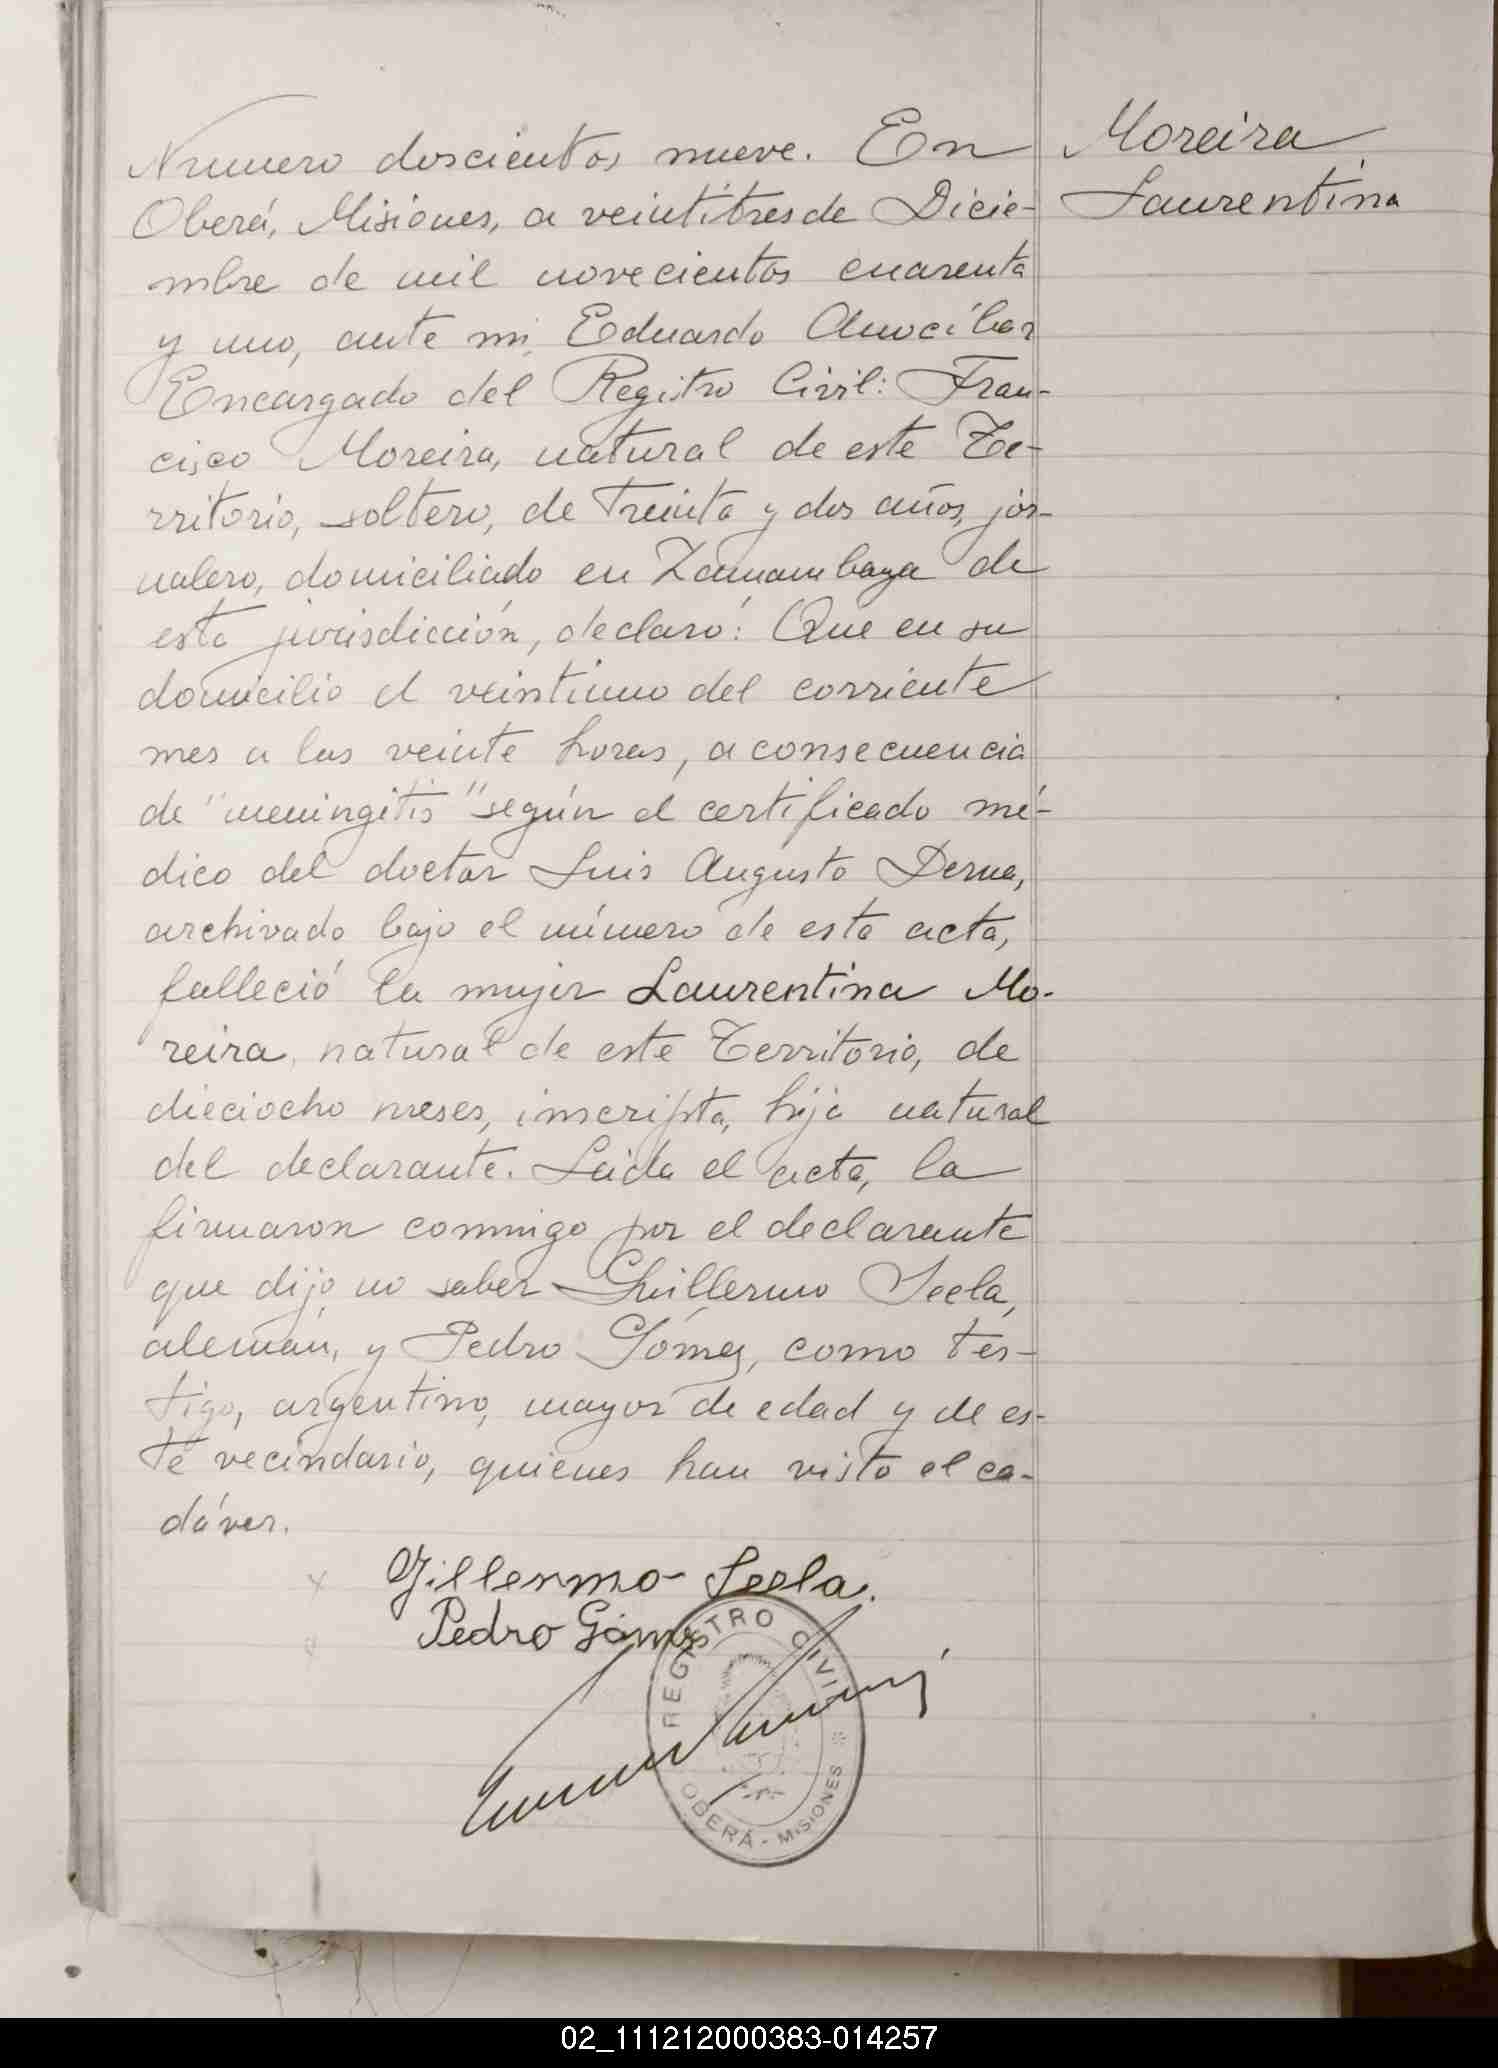 Numero doscientos nueve. En
Oberá, Misiones, a veintitres de Dicie-
mbre de mil novecientos cuarenta
y uno, ante mi, Eduardo
Encargado del Registro Civil: Fran-
cisco Moreira, natural de este Te-
rritorio, soltero, de treinta y dos años, jor-
nalero, domiciliado en de
esta jurisdicción, declaró: Que en su
domicilio el veintiuno del corriente
mes a las veinte horas, a consecuencia
de "meningitis" según el certificado mé-
dico del doctor Luis Augusto Derna,
archivado bajo el número de esta acta,
falleció la mujer Laurentina Mo-
reira, natural de este Territorio, de
dieciocho meses, inscripta, hija natural
del declarante. Leida el acta, la
firmaron conmigo por el declarante
que dijo no saber Guillermo Seela,
alemán, y Pedro Gómez, como tes-
tigo, argentino, mayor de edad y de es-
te vecindario, quienes han visto el ca-
dáver.
Moreira
Laurentina
Gillermo Seela.
Pedro Gómez
REGISTRO CIVIL
OBERÁ - MISIONES
02_111212000383-014257